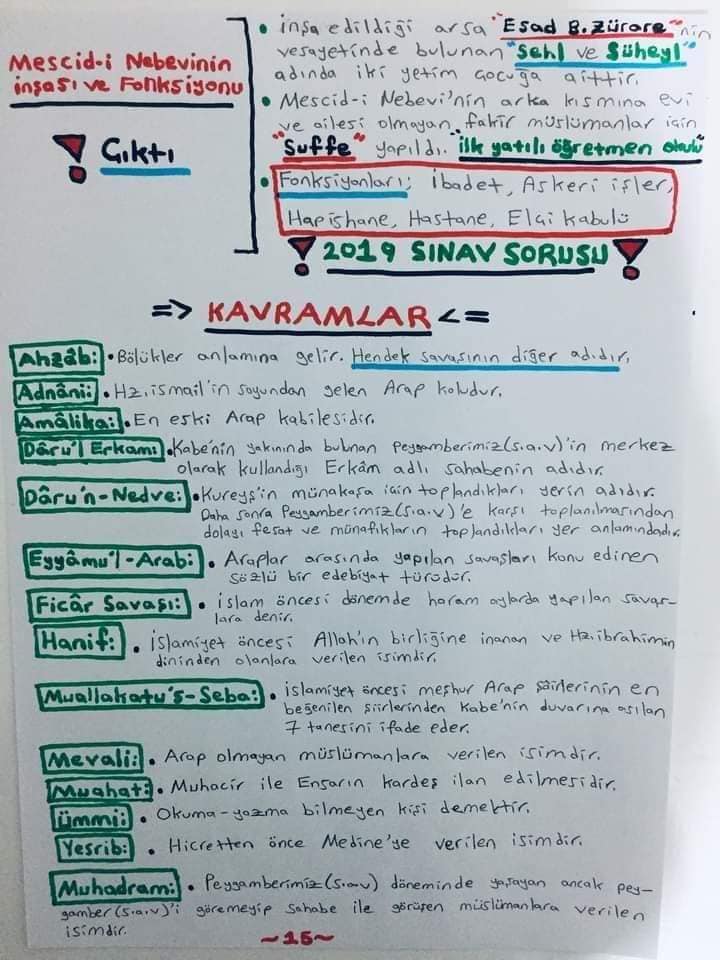 Mescid-i Nebevinin
inşası ve Fonksiyonu
! Çıktı
• inşa edildiği arsa "Esad B. Zürare"nin
vesayetinde bulunan "Sehl ve Süheyl"
adında iki yetim çocuğa aittir.
• Mescid-i Nebevi'nin arka kısmına evi
ve ailesi olmayan fakir müslümanlar için
"Suffe" yapıldı. ilk yatılı öğretmen okulu
• Fonksiyonları; İbadet, Askeri işler,
Hapishane, Hastane, Elçi Kabulü
! 2019 SINAV SORUSU !
=> KAVRAMLAR <=
Ahzâb: • Bölükler anlamına gelir. Hendek savaşının diğer adıdır.
Adnâni: • Hz. ismail'in soyundan gelen Arap koludur.
Amâlika: • En eski Arap kabilesidir.
Dâru'l Erkam: • Kabe'nin yakınında bulunan Peygamberimiz(s.a.v)'in merkez
olarak kullandığı Erkâm adlı sahabenin adıdır.
Dâru'n-Nedve: • Kureyş'in münakaşa için toplandıkları yerin adıdır.
Daha sonra Peygamberimiz(s.a.v)'e karşı toplanılmasından
dolayı fesat ve münafıkların toplandıkları yer anlamındadır.
Eyyâmu'l-Arab: • Araplar arasında yapılan savaşları konu edinen
sözlü bir edebiyat türüdür.
Ficâr Savaşı: • islam öncesi dönemde haram aylarda yapılan savaş-
lara denir.
Hanif: • islamiyet öncesi Allah'ın birliğine inanan ve Hz. ibrahimin
dininden olanlara verilen isimdir.
Muallakatu's-Seba: • islamiyet öncesi meşhur Arap şairlerinin en
beğenilen şiirlerinden Kabe'nin duvarına asılan
7 tanesini ifade eder.
Mevali: • Arap olmayan müslümanlara verilen isimdir.
Muahat: • Muhacir ile Ensarın kardeş ilan edilmesidir.
Ümmi: • Okuma-yazma bilmeyen kişi demektir.
Yesrib: • Hicretten önce Medine'ye verilen isimdir.
Muhadram: • Peygamberimiz(s.a.v) döneminde yaşayan ancak pey-
gamber(s.a.v)'i göremeyip sahabe ile görüşen müslümanlara verilen
isimdir.
~15~